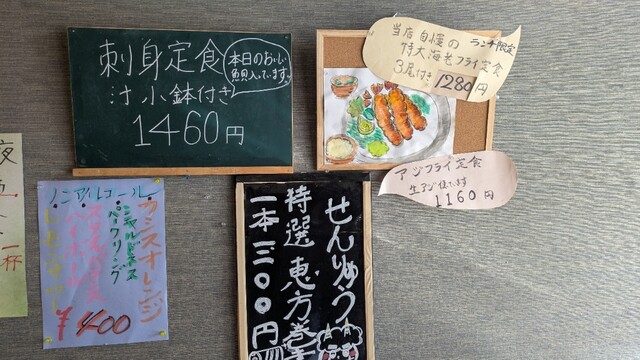 刺身定食
本日のおいしい
魚入っています。
汁 小鉢付き
1460円
当店自慢の ランチ限定
特大海老フライ定食
3尾付き 1280円
アジフライ定食
生アジ使ってます
1160円
せんりゅう
特選 恵方巻き
一本 一三〇〇円
ノンアルコール
カシスオレンジ
シャルドネ
スパークリング
¥400
夜
一杯